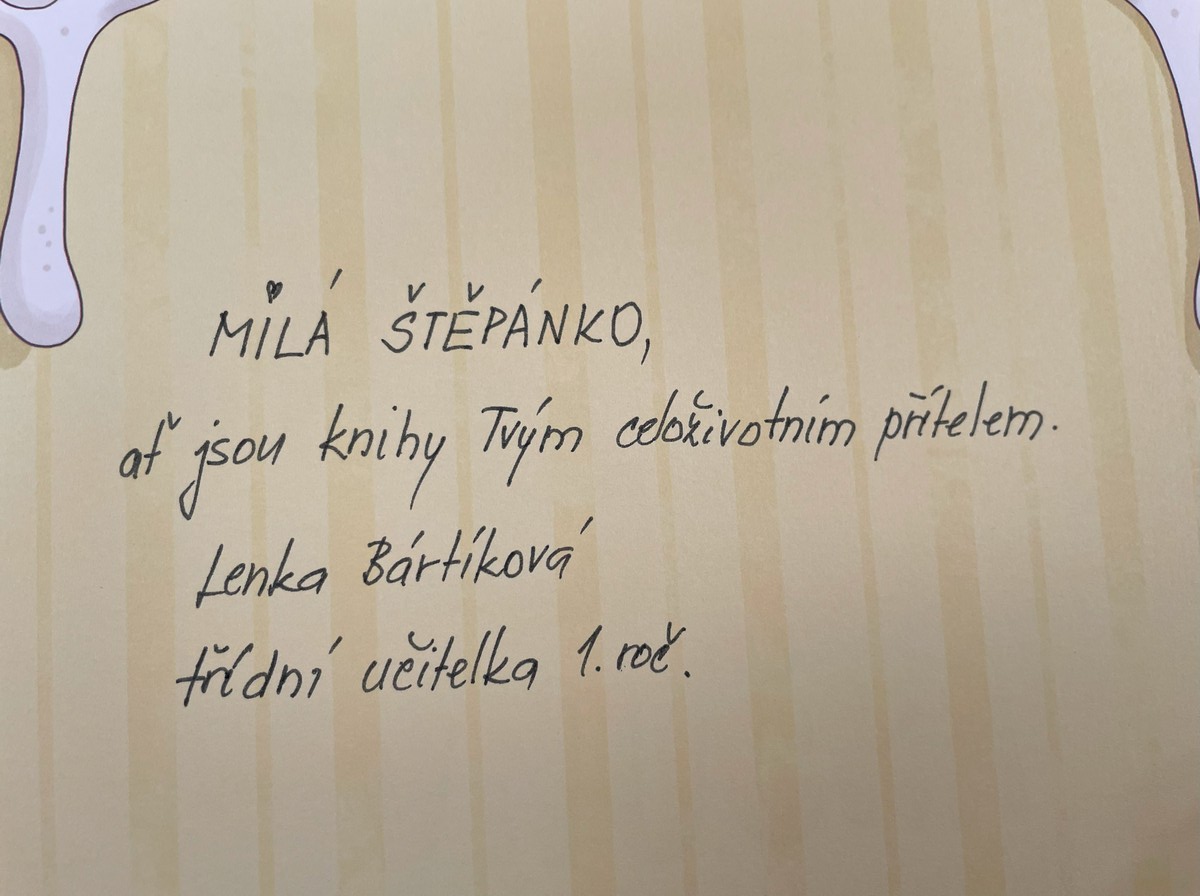 MILÁ ŠTĚPÁNKO,
ať jsou knihy Tvým celoživotním přítelem.
Lenka Bártíková
třídní učitelka 1. roč.